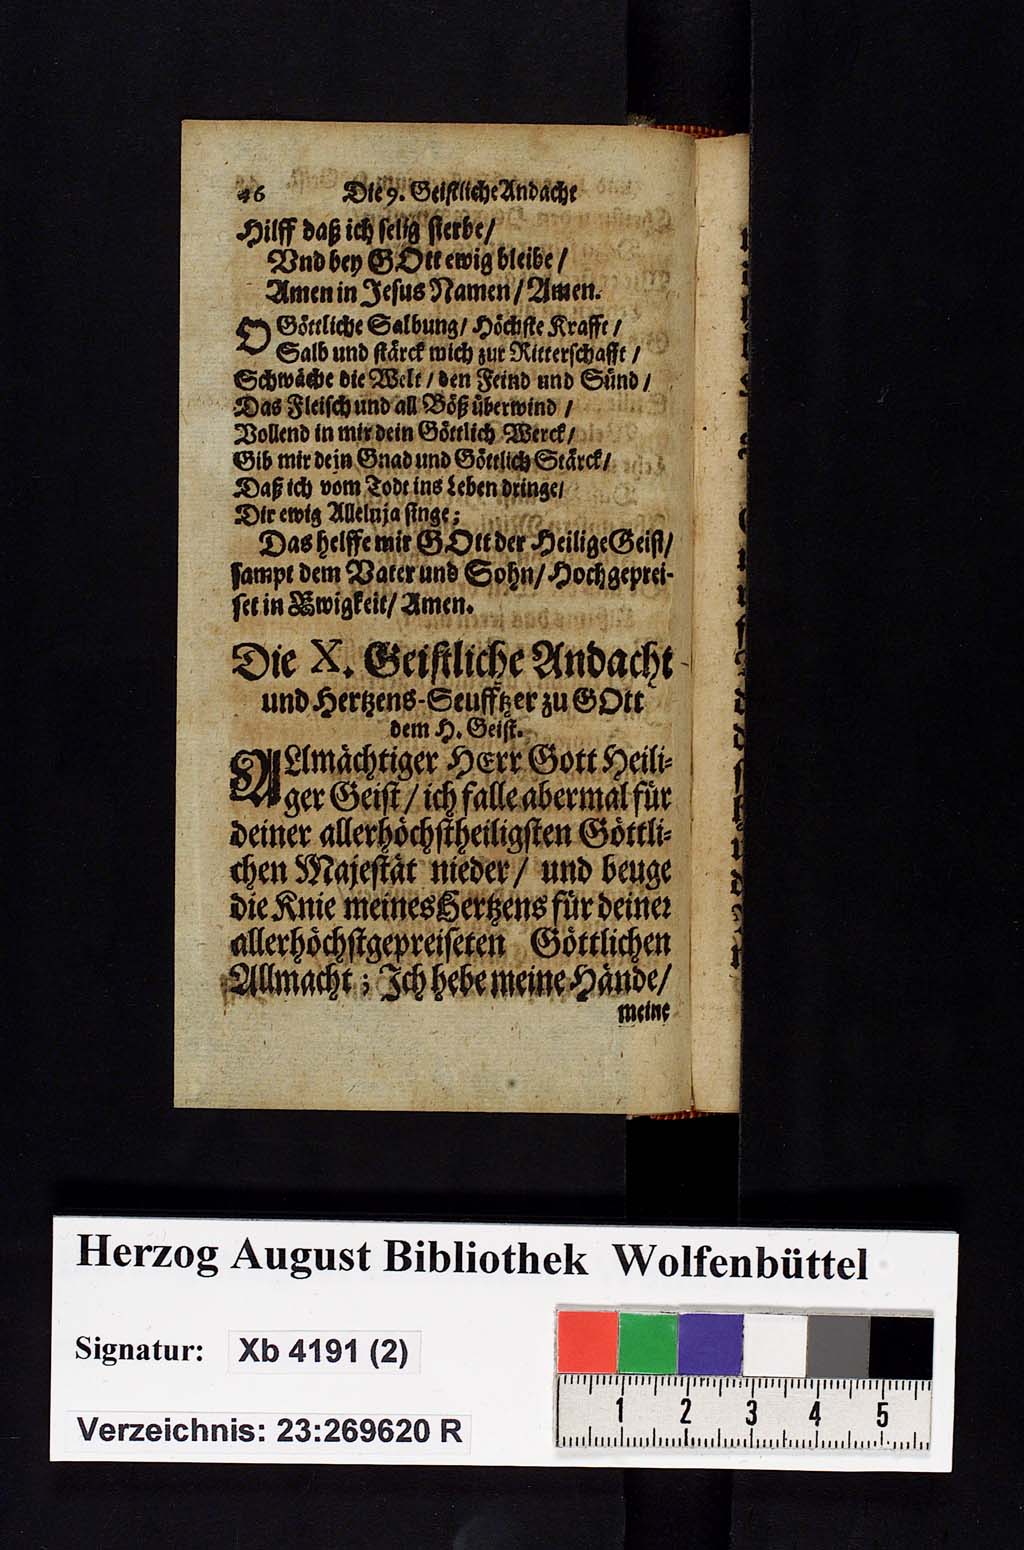 46 Die 9. Geistliche Andacht
Hilff daß ich selig sterbe/
Vnd bey GOtt ewig bleibe/
Amen in Jesus Namen/ Amen.
O Göttliche Salbung/ Höchste Krafft/
Salb und stärck mich zur Ritterschafft/
Schwäche die Welt/ den Feind und Sünd/
Das Fleisch und all Böß überwind/
Vollend in mir dein Göttlich Werck/
Gib mir dein Gnad und Göttlich Stärck/
Daß ich vom Todt ins Leben dringe/
Dir ewig Alleluja singe;
Das helffe mir GOtt der Heilige Geist/
sampt dem Vater und Sohn/ Hochgeprei-
set in Ewigkeit/ Amen.
Die X. Geistliche Andacht
und Hertzens-Seufftzer zu GOtt
dem H. Geist.
ALlmächtiger HErr Gott Heili-
ger Geist/ ich falle abermal für
deiner allerhöchstheiligsten Göttli-
chen Majestät nieder/ und beuge
die Knie meines Hertzens für deiner
allerhöchstgepreiseten Göttlichen
Allmacht; Ich hebe meine Hände/
meine
Herzog August Bibliothek Wolfenbüttel
Signatur: Xb 4191 (2)
Verzeichnis: 23:269620 R
1 2 3 4 5